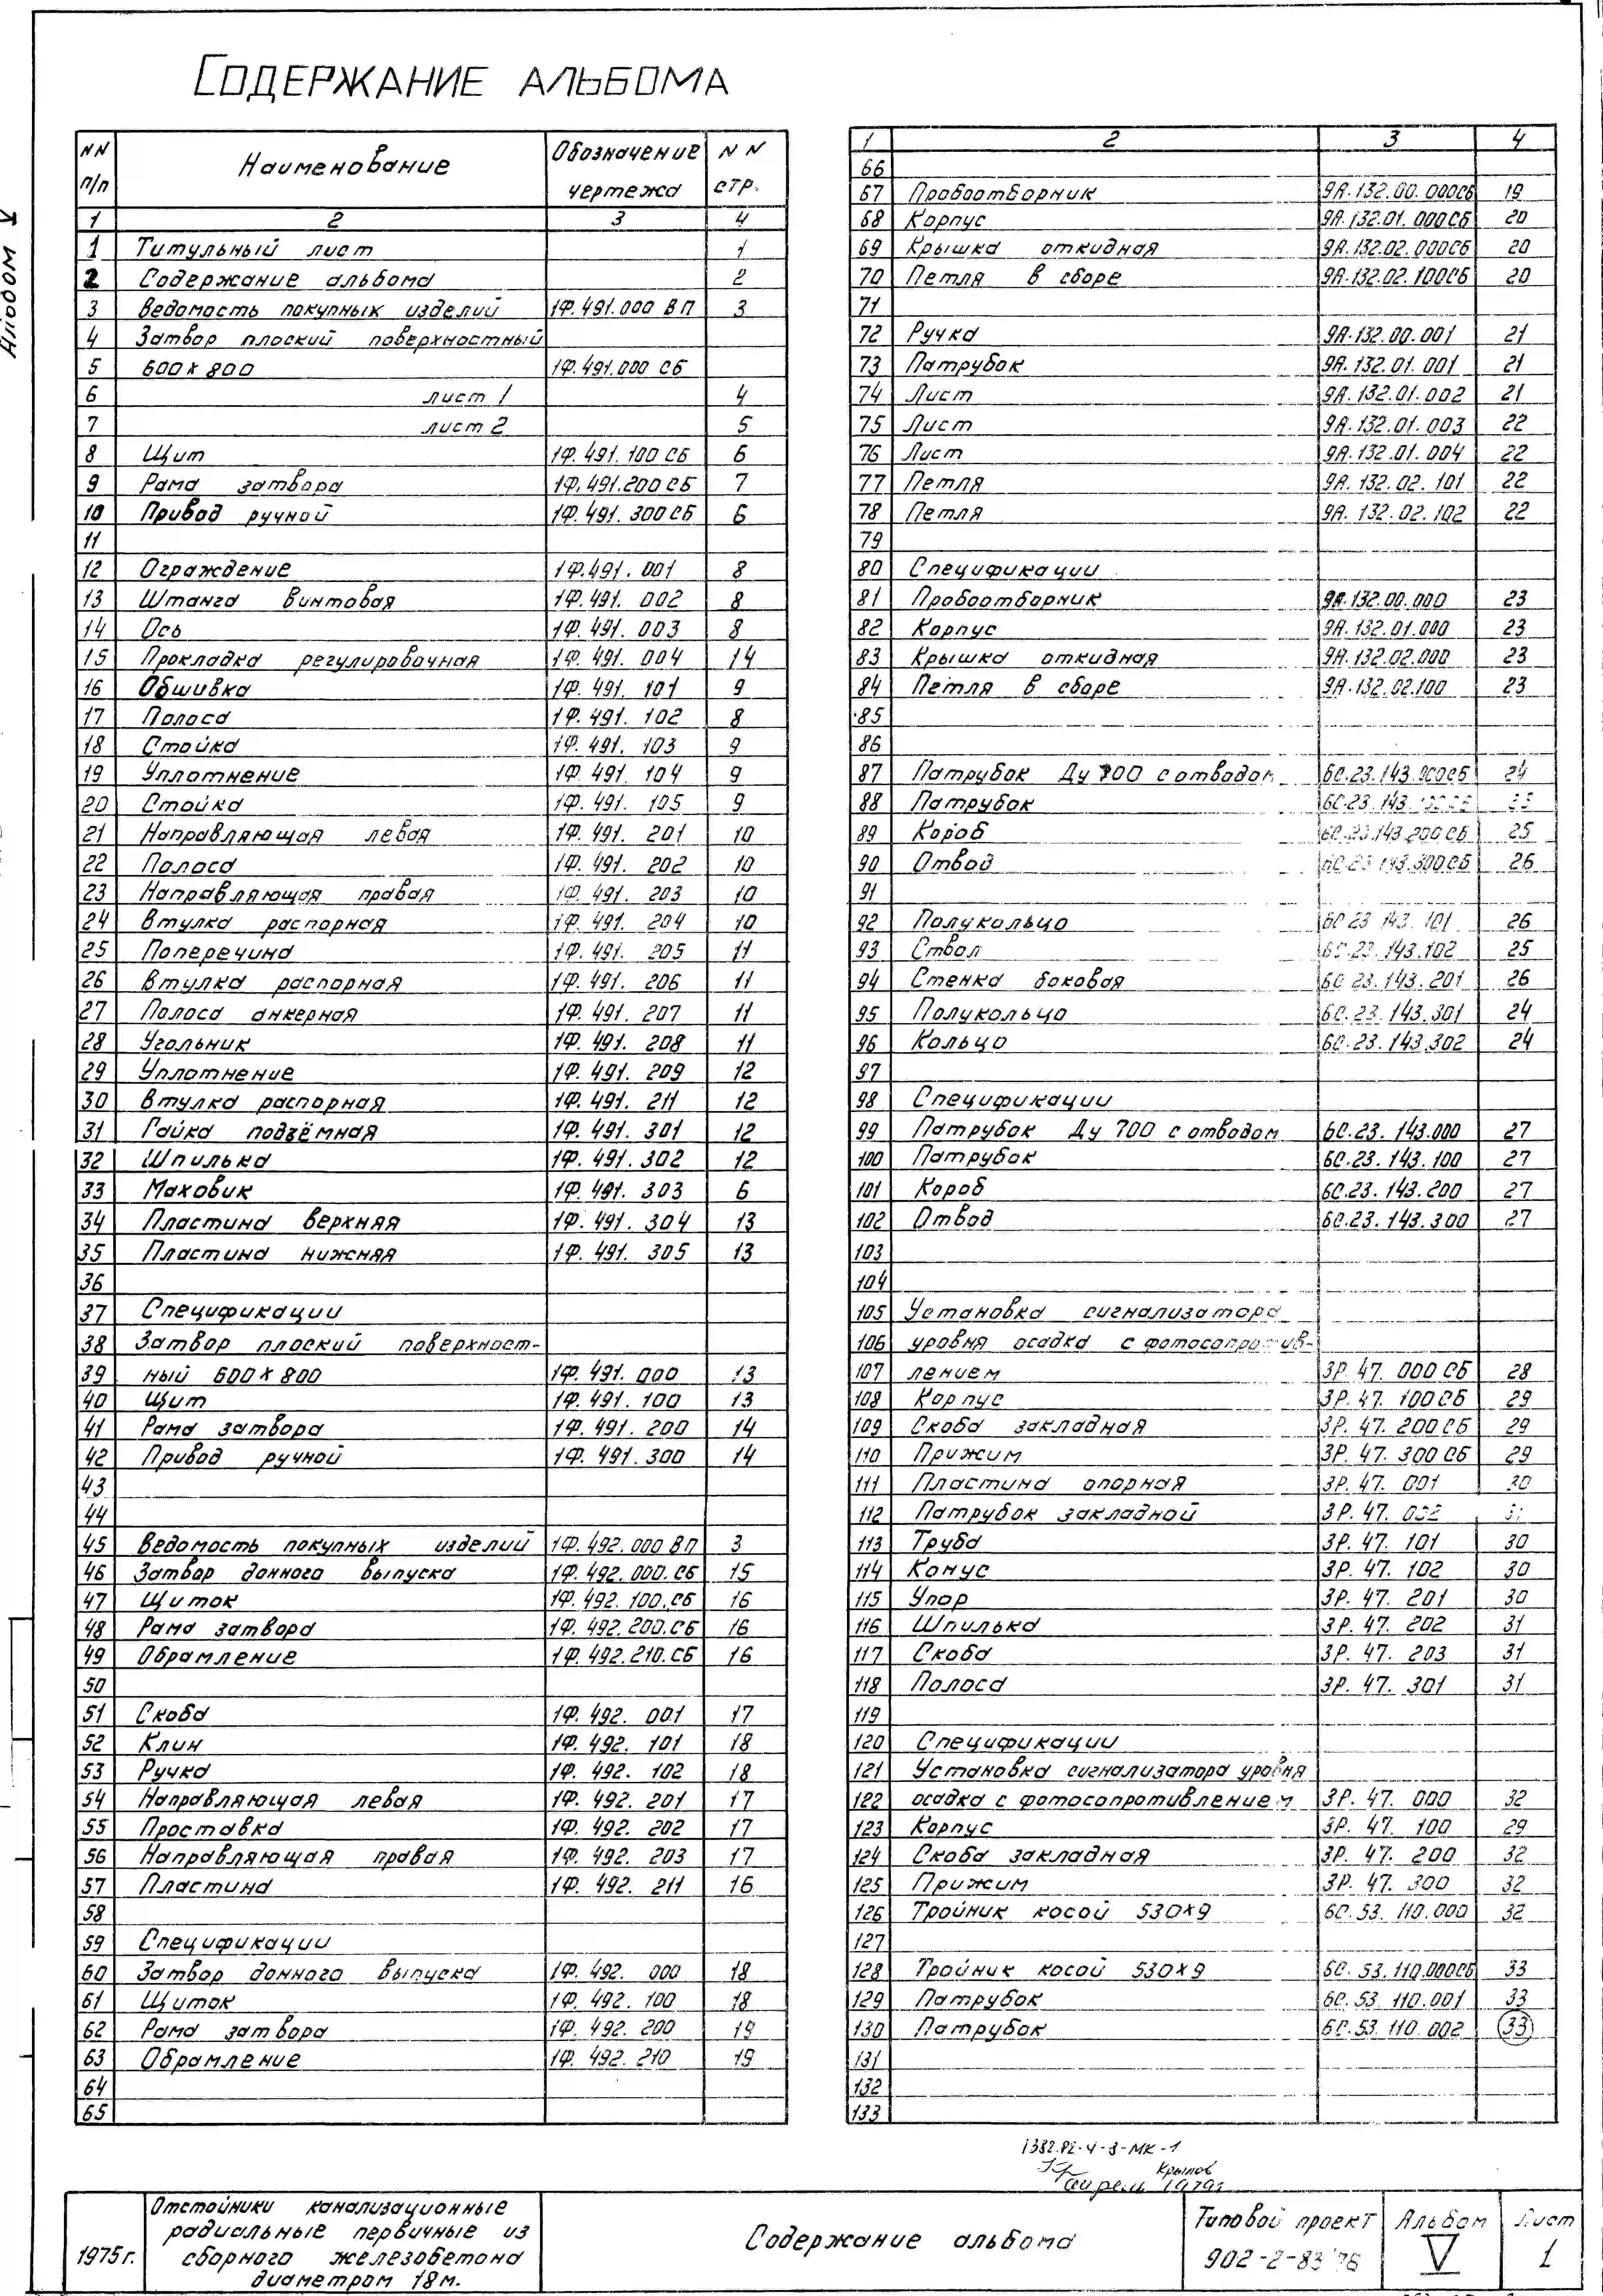 Альбом V
Содержание альбома
NN п/п Наименование Обозначение чертежа NN стр.
1 2 3 4
1 Титульный лист 1
2 Содержание альбома 2
3 Ведомость покупных изделий 1Ф.491.000 ВП 3
4 Затвор плоский поверхностный
5 600×800 1Ф.491.000 СБ
6 лист 1 4
7 лист 2 5
8 Щит 1Ф.491.100 СБ 6
9 Рама затвора 1Ф.491.200 СБ 7
10 Привод ручной 1Ф.491.300 СБ 6
11
12 Ограждение 1Ф.491.001 8
13 Штанга винтовая 1Ф.491.002 8
14 Ось 1Ф.491.003 8
15 Прокладка регулировочная 1Ф.491.004 14
16 Обшивка 1Ф.491.101 9
17 Полоса 1Ф.491.102 8
18 Стойка 1Ф.491.103 9
19 Уплотнение 1Ф.491.104 9
20 Стойка 1Ф.491.105 9
21 Направляющая левая 1Ф.491.201 10
22 Полоса 1Ф.491.202 10
23 Направляющая правая 1Ф.491.203 10
24 Втулка распорная 1Ф.491.204 10
25 Поперечина 1Ф.491.205 11
26 Втулка распорная 1Ф.491.206 11
27 Полоса анкерная 1Ф.491.207 11
28 Угольник 1Ф.491.208 11
29 Уплотнение 1Ф.491.209 12
30 Втулка распорная 1Ф.491.211 12
31 Гайка подзёмная 1Ф.491.301 12
32 Шпилька 1Ф.491.302 12
33 Маховик 1Ф.491.303 6
34 Пластина верхняя 1Ф.491.304 13
35 Пластина нижняя 1Ф.491.305 13
36
37 Спецификации
38 Затвор плоский поверхност-
39 ный 600×800 1Ф.491.000 13
40 Щит 1Ф.491.100 13
41 Рама затвора 1Ф.491.200 14
42 Привод ручной 1Ф.491.300 14
43
44
45 Ведомость покупных изделий 1Ф.492.000 ВП 3
46 Затвор донного выпуска 1Ф.492.000.СБ 15
47 Щиток 1Ф.492.100.СБ 16
48 Рама затвора 1Ф.492.200.СБ 16
49 Обрамление 1Ф.492.210.СБ 16
50
51 Скоба 1Ф.492.001 17
52 Клин 1Ф.492.101 18
53 Ручка 1Ф.492.102 18
54 Направляющая левая 1Ф.492.201 17
55 Проставка 1Ф.492.202 17
56 Направляющая правая 1Ф.492.203 17
57 Пластина 1Ф.492.211 16
58
59 Спецификации
60 Затвор донного выпуска 1Ф.492.000 18
61 Щиток 1Ф.492.100 18
62 Рама затвора 1Ф.492.200 19
63 Обрамление 1Ф.492.210 19
64
65
1 2 3 4
66
67 Пробоотборник 9А.132.00.000СБ 19
68 Корпус 9А.132.01.000СБ 20
69 Крышка откидная 9А.132.02.000СБ 20
70 Петля в сборе 9А.132.02.100СБ 20
71
72 Ручка 9А.132.00.001 21
73 Патрубок 9А.132.01.001 21
74 Лист 9А.132.01.002 21
75 Лист 9А.132.01.003 22
76 Лист 9А.132.01.004 22
77 Петля 9А.132.02.101 22
78 Петля 9А.132.02.102 22
79
80 Спецификации
81 Пробоотборник 9А.132.00.000 23
82 Корпус 9А.132.01.000 23
83 Крышка откидная 9А.132.02.000 23
84 Петля в сборе 9А.132.02.100 23
85
86
87 Патрубок Ду 700 с отводом 6С.23.143.000СБ 24
88 Патрубок
89 Короб 6С.23.143.200СБ 25
90 Отвод 6С.23.143.300СБ 26
91
92 Полукольцо 6С.23.143.101 26
93 Ствол 6С.23.143.102 25
94 Стенка боковая 6С.23.143.201 26
95 Полукольцо 6С.23.143.301 24
96 Кольцо 6С.23.143.302 24
97
98 Спецификации
99 Патрубок Ду 700 с отводом 6С.23.143.000 27
100 Патрубок 6С.23.143.100 27
101 Короб 6С.23.143.200 27
102 Отвод 6С.23.143.300 27
103
104
105 Установка сигнализатора
106 уровня осадка с фотосопротив-
107 лением 3Р.47.000 СБ 28
108 Корпус 3Р.47.100 СБ 29
109 Скоба закладная 3Р.47.200 СБ 29
110 Прижим 3Р.47.300 СБ 29
111 Пластина опорная 3Р.47.001 30
112 Патрубок закладной 3Р.47.002
113 Труба 3Р.47.101 30
114 Конус 3Р.47.102 30
115 Упор 3Р.47.201 30
116 Шпилька 3Р.47.202 31
117 Скоба 3Р.47.203 31
118 Полоса 3Р.47.301 31
119
120 Спецификации
121 Установка сигнализатора уровня
122 осадка с фотосопротивлением 3Р.47.000 32
123 Корпус 3Р.47.100 29
124 Скоба закладная 3Р.47.200 32
125 Прижим 3Р.47.300 32
126 Тройник косой 530×9 6С.53.110.000 32
127
128 Тройник косой 530×9 6С.53.110.000СБ 33
129 Патрубок 6С.53.110.001 33
130 Патрубок 6С.53.110.002 33
131
132
133
Крылов
1975г.
Отстойники канализационные
радиальные первичные из
сборного железобетона
диаметром 18м.
Содержание альбома
Типовой проект
902-2-83/76
Альбом
V
Лист
1